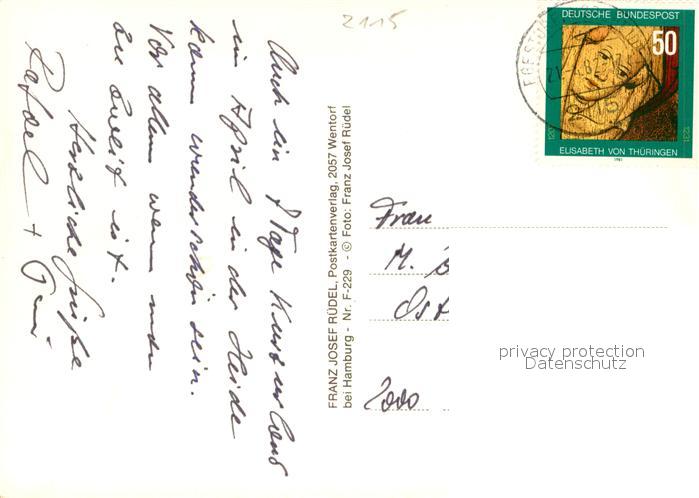 2115
Auch ein 8 Tage Kurzurlaub
im April in der Heide
kann wunderschön sein.
Vor allem wenn man
zu zweit ist.
Herzliche Grüße
+
FRANZ JOSEF RÜDEL, Postkartenverlag, 2057 Wentorf
bei Hamburg - Nr. F-229 - © Foto: Franz Josef Rüdel
DEUTSCHE BUNDESPOST
50
1207
1231
ELISABETH VON THÜRINGEN
1981
Frau
M.
Ost
2000
privacy protection
Datenschutz